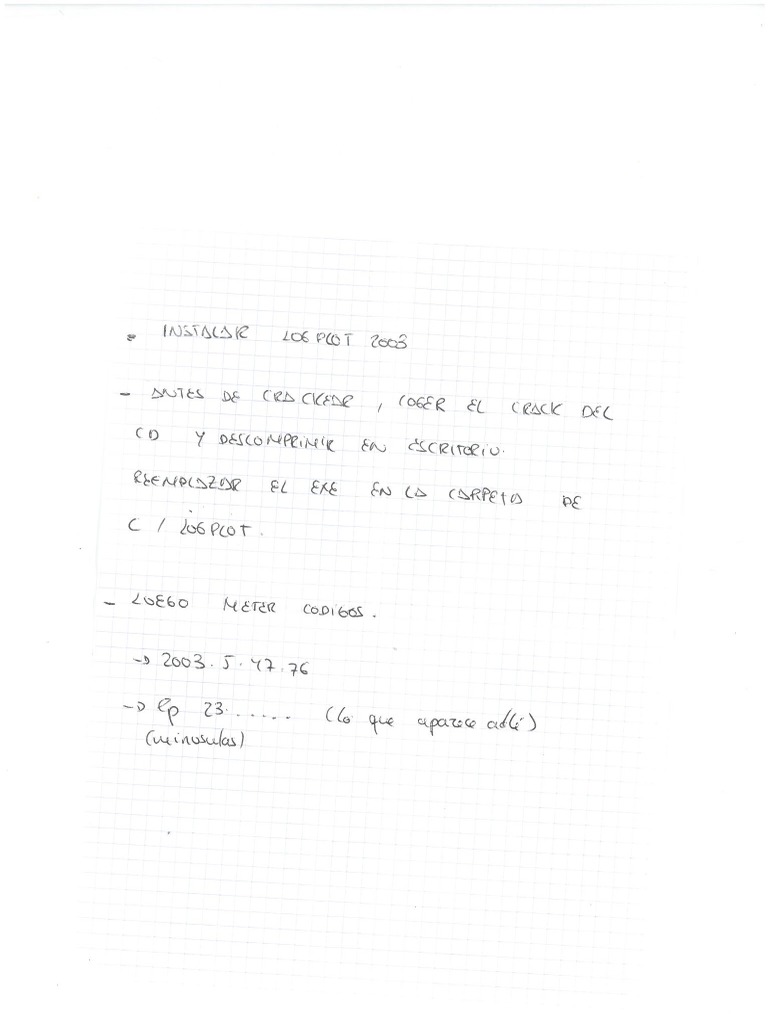 - INSTALAR LOGPLOT 2003
- ANTES DE CRACKEAR, COGER EL CRACK DEL
CD Y DESCOMPRIMIR EN ESCRITORIO.
REEMPLAZAR EL EXE EN LA CARPETA DE
C / LOGPLOT.
- LUEGO METER CODIGOS.
→ 2003.5.47.76
→ 23...... (lo que aparece allí)
(minusulas)